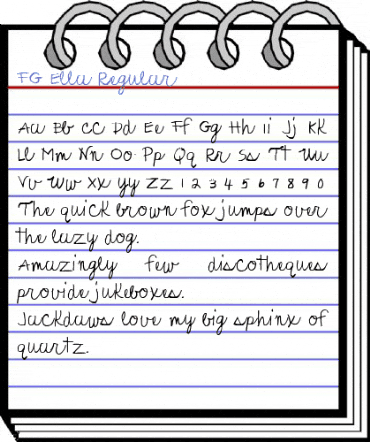 FG Ella Regular
Aa Bb CC Dd Ee Ff Gg Hh ii Jj KK
Ll Mm Nn Oo Pp Qq Rr Ss Tt Uu
Vv Ww XX yy ZZ 1 2 3 4 5 6 7 8 9 0
The quick brown fox jumps over
the lazy dog.
Amazingly few discotheques
provide jukeboxes.
Jackdaws love my big sphinx of
quartz.